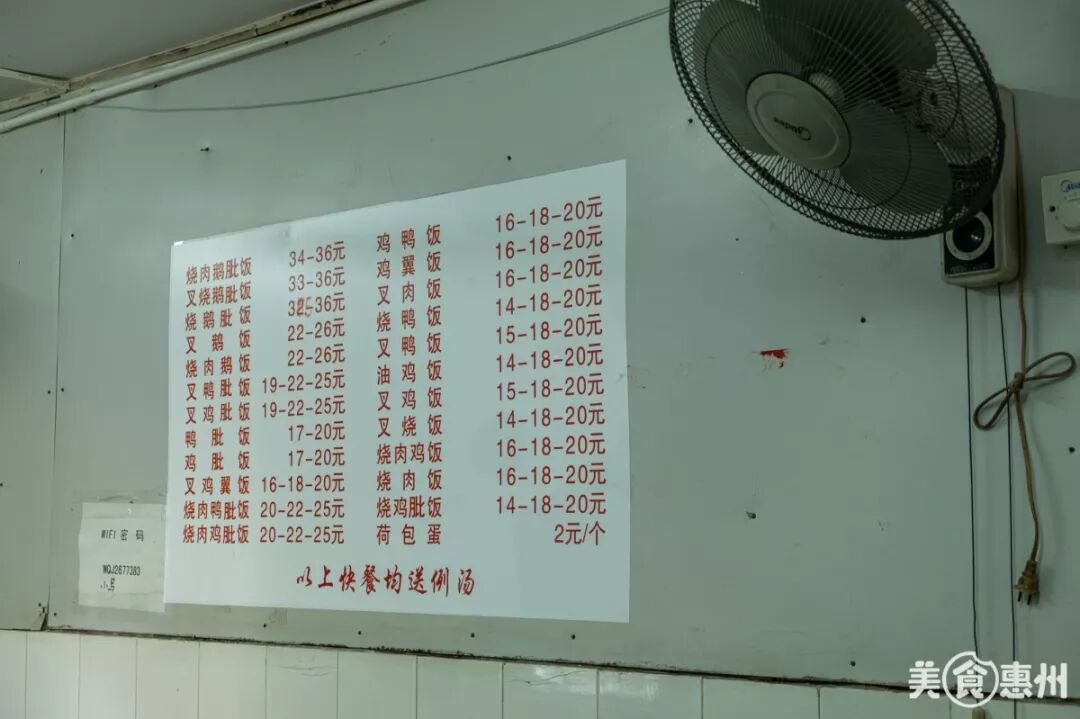 烧肉鹅肚饭 34-36元
叉烧鹅肚饭 33-36元
烧鹅肚饭
叉鹅饭 22-26元
烧肉鹅饭 22-26元
叉鸭肚饭 19-22-25元
叉鸡肚饭 19-22-25元
鸭肚饭 17-20元
鸡肚饭 17-20元
叉鸡翼饭 16-18-20元
烧肉鸭肚饭 20-22-25元
烧肉鸡肚饭 20-22-25元
鸡鸭饭 16-18-20元
鸡翼饭 16-18-20元
叉肉饭 16-18-20元
烧鸭饭 14-18-20元
叉鸭饭 15-18-20元
油鸡饭 14-18-20元
叉鸡饭 15-18-20元
叉烧饭 14-18-20元
烧肉鸡饭 16-18-20元
烧肉饭 16-18-20元
烧鸡肚饭 14-18-20元
荷包蛋 2元/个
以上快餐均送例汤
WIFI 密码
WQJ2677383
Midea
美食惠州